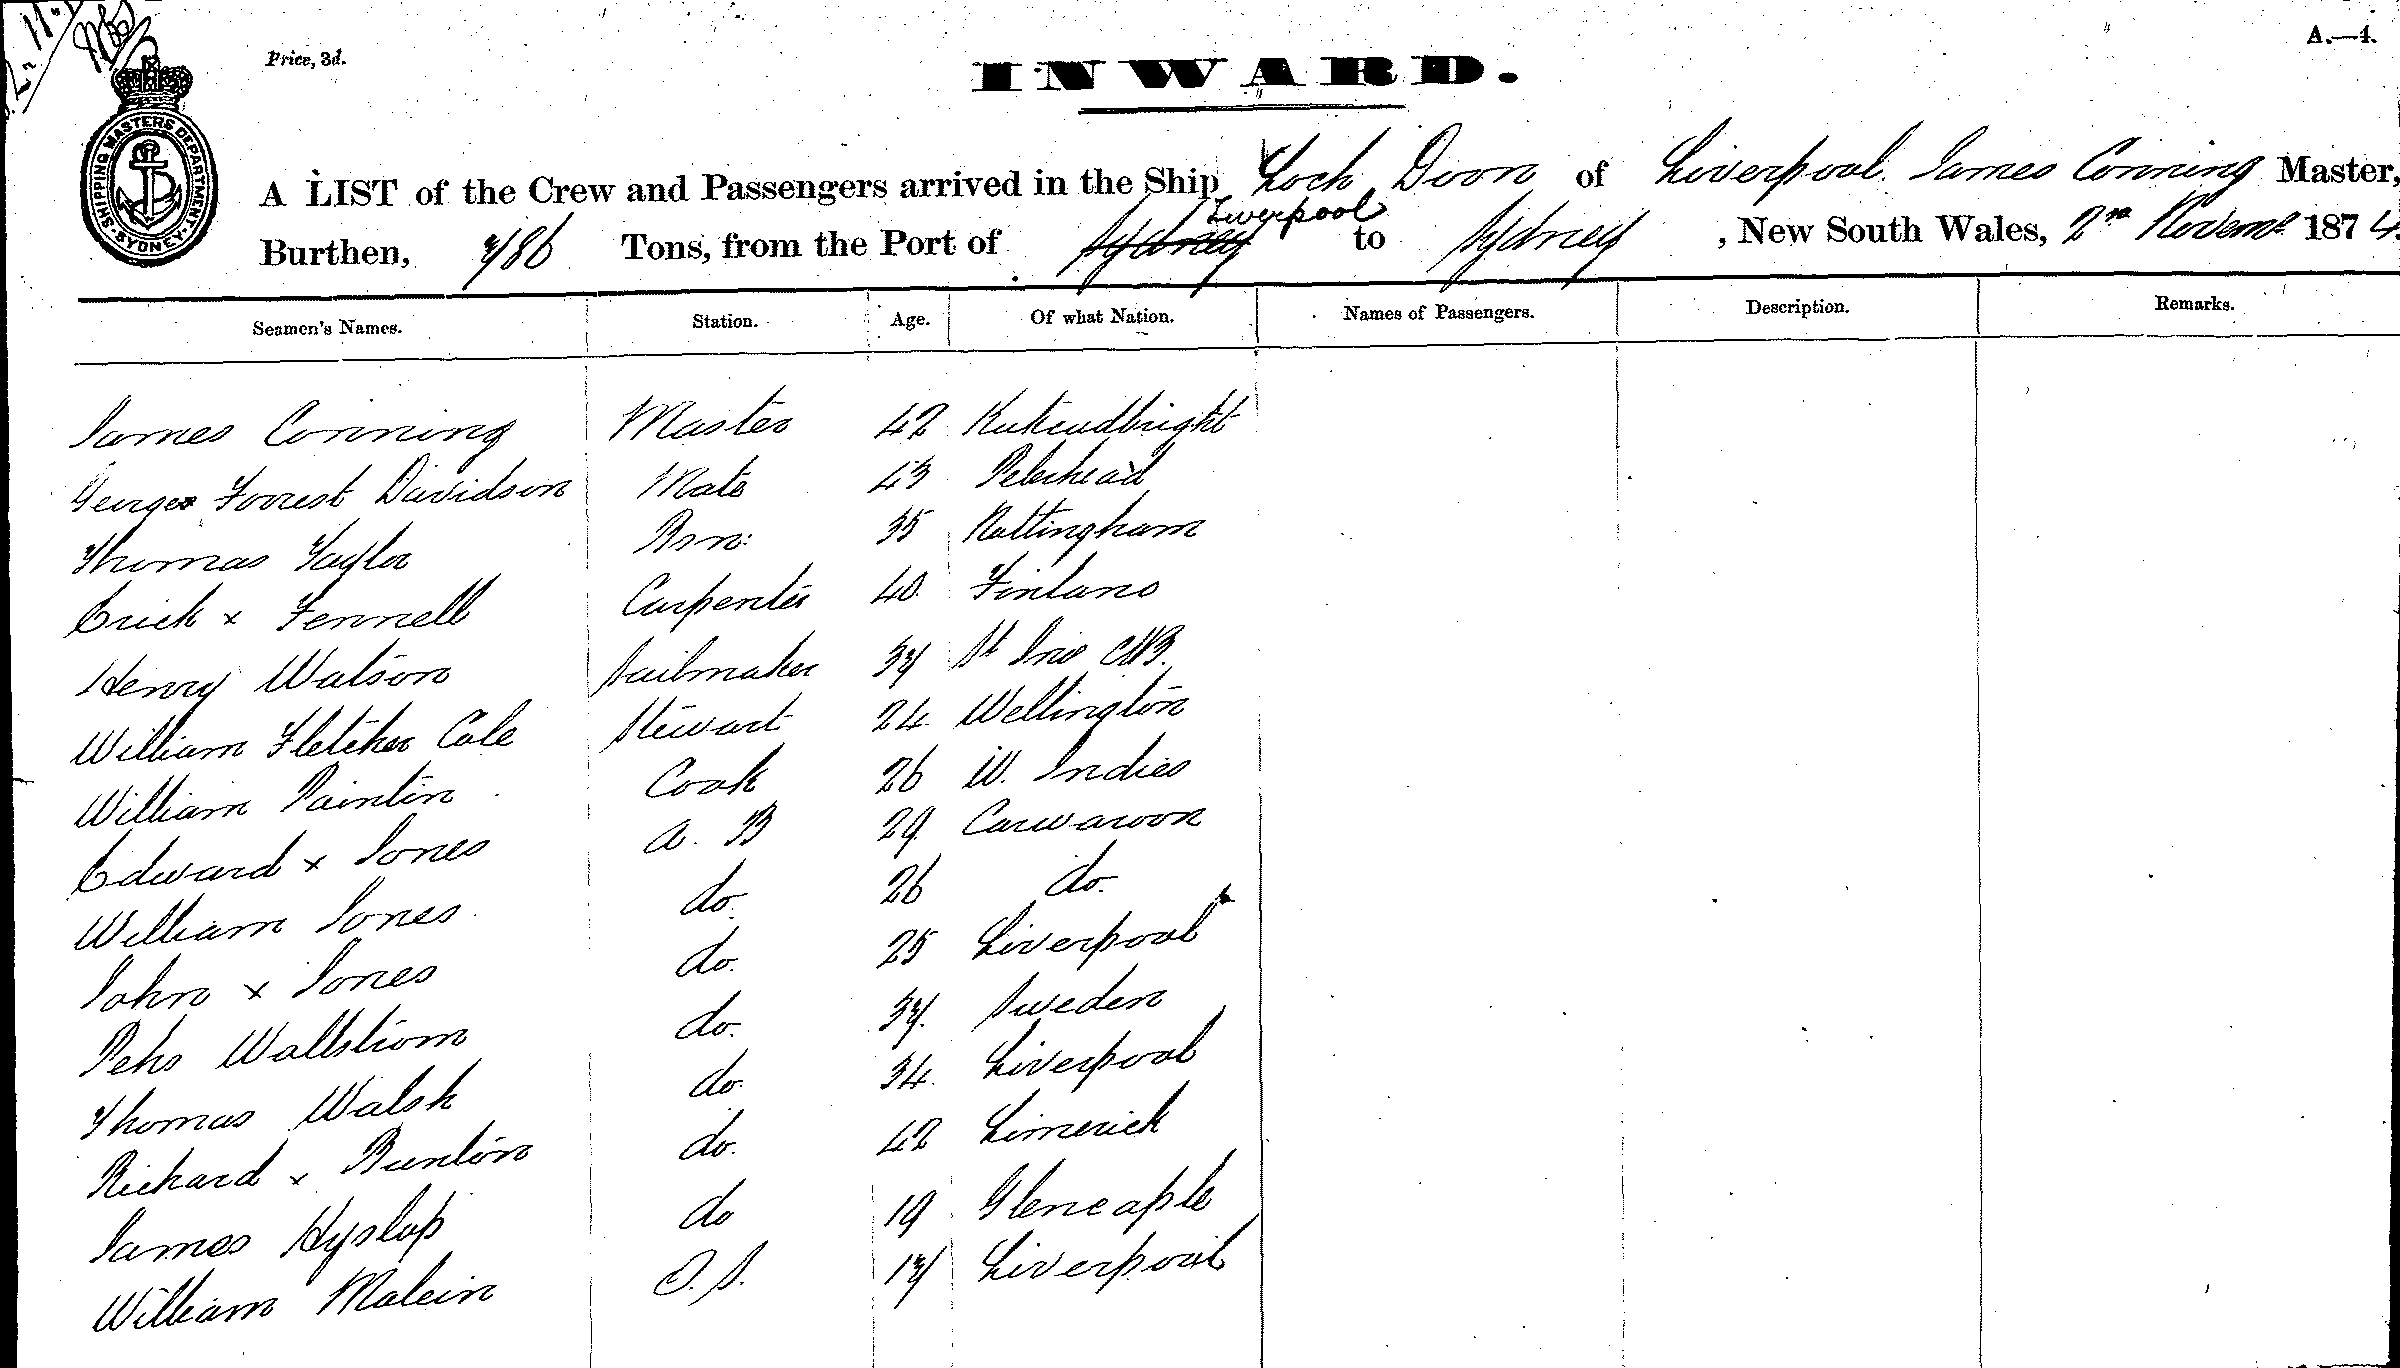 Price, 3d.
A.—4.
INWARD.
SHIPPING MASTERS DEPARTMENT
SYDNEY
A LIST of the Crew and Passengers arrived in the Ship Loch Doon of Liverpool. James Conning Master,
Liverpool
Burthen, 786 Tons, from the Port of Sydney to Sydney, New South Wales, 2nd Novemr 1874.
Seamen's Names. Station. Age. Of what Nation. Names of Passengers. Description. Remarks.
James Conning Master 42 Kirkcudbright
George Forrest Davidson Mate 43 Peterhead
Thomas Taylor Bsn: 35 Nottingham
Erick x Fennell Carpenter 40 Finland
Henry Watson Sailmaker 37 St
William Fletcher Cole Stewart 24 Wellington
William Paintin Cook 26 W. Indies
Edward x Jones A. B 29 Carnarvon
William Jones do. 26 do.
John x Jones do. 25 Liverpool
Pehr Wallstrom do. 37. Sweden
Thomas Walsh do. 34. Liverpool
Richard x Bunton do. 42 Limerick
James Hyslop do 19 Gleneaple
William Malein O.S. 17 Liverpool